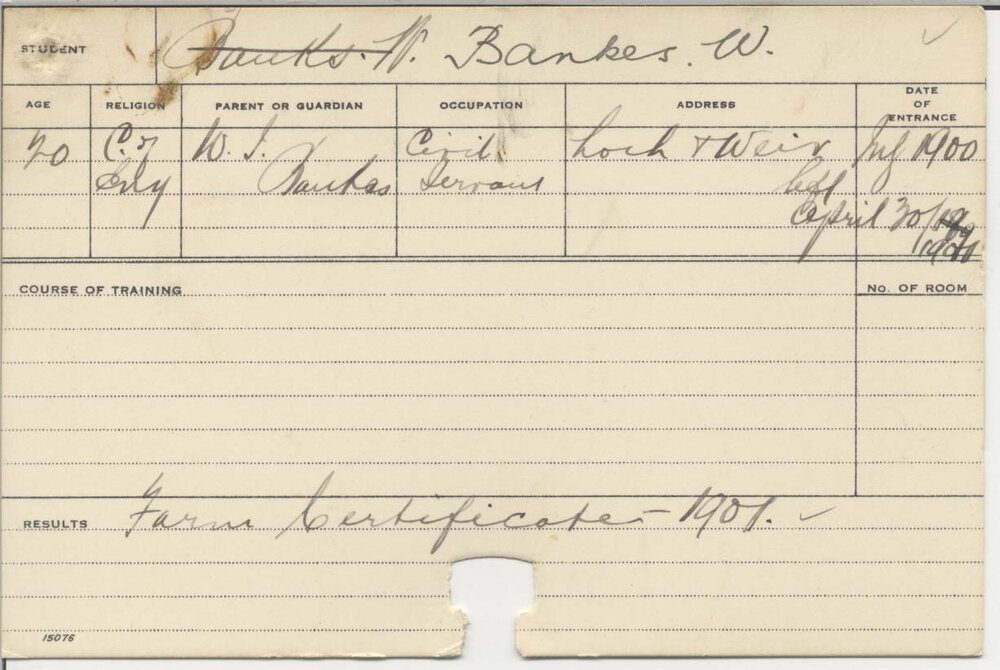 STUDENT Banks. W. Bankes. W.
AGE RELIGION PARENT OR GUARDIAN OCCUPATION ADDRESS DATE OF ENTRANCE
20 C. of W. J. Civil & Weir 1900
Eng Bankes Servant left
April 30/
1901
COURSE OF TRAINING No. OF ROOM
RESULTS Farm Certificate - 1901.
15076